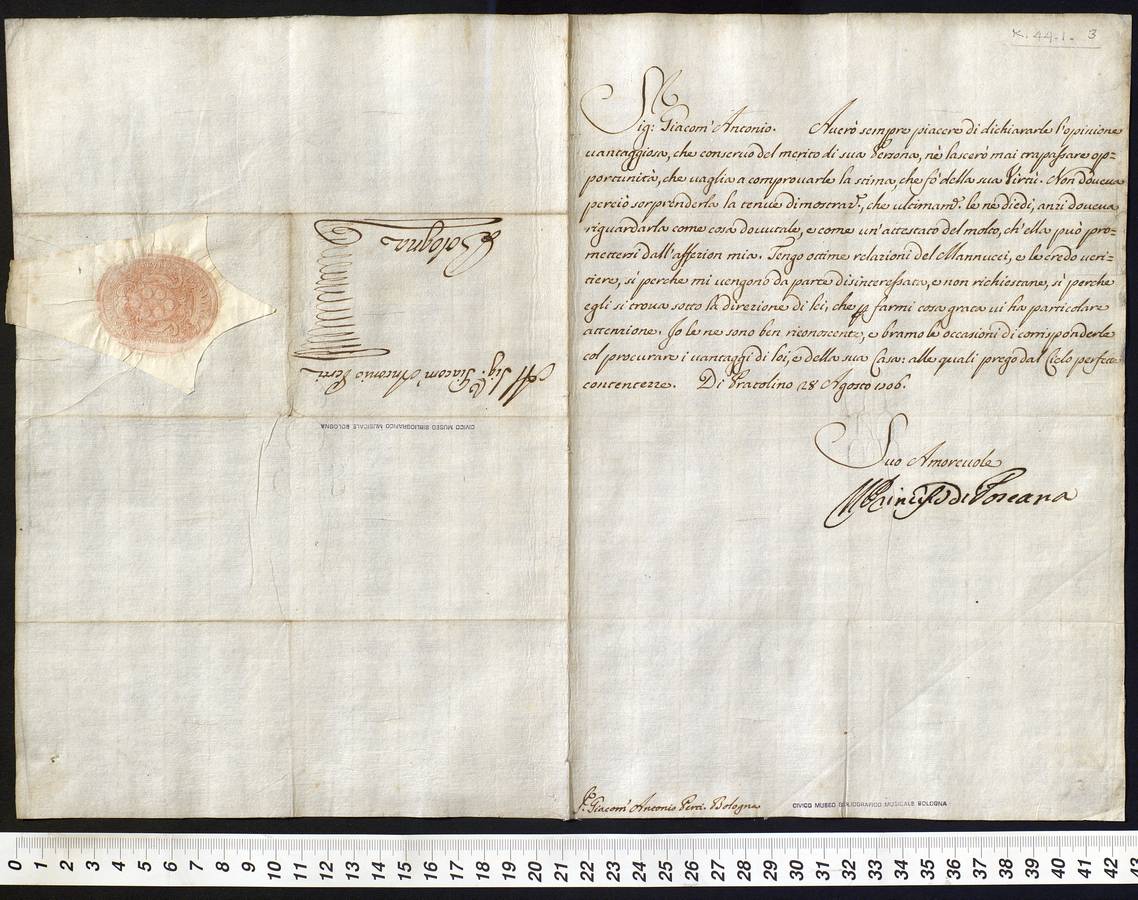 K. 44. 1. 3
Sig: Giacom' Antonio. Averò sempre piacere di dichiararle l'opinione
vantaggiosa, che conservo del merito di sua Persona, nè lascerò mai trapassare op-
portunità, che vaglia a comprovarle la stima, che fò della sua Virtù. Non doveva
perciò sorprenderla la tenue dimostraz.e, che ultimam.e le ne diedi, anzi doveva
riguardarla come cosa dovutale, e come un'attestato del molto, ch'ella può pro-
mettersi dall'affezion mia. Tengo ottime relazioni del Mannucci, e le credo veri-
tiere, sì perche mi vengono da parte disinteressata, e non richiestane, sì perche
egli si trova sotto la direzione di lei, che p farmi cosa grata vi ha particolare
attenzione. Io le ne sono ben riconoscente, e bramo le occasioni di corrisponderle
col procurare i vantaggi di lei, e della sua Casa: alle quali prego dal Cielo perfette
contentezze. Di Pratolino 28 Agosto 1706.
Suo Amorevole
Principe di Toscana
S. Giacom' Antonio Perti. Bologna
CIVICO MUSEO BIBLIOGRAFICO MUSICALE BOLOGNA
Al Sig: Giacom' Antonio Perti
Bologna
CIVICO MUSEO BIBLIOGRAFICO MUSICALE BOLOGNA
0 1 2 3 4 5 6 7 8 9 10 11 12 13 14 15 16 17 18 19 20 21 22 23 24 25 26 27 28 29 30 31 32 33 34 35 36 37 38 39 40 41 42 43